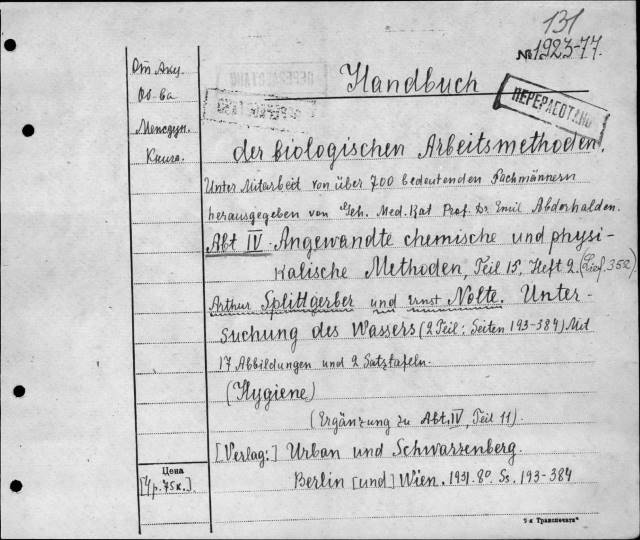 131
№ 1923-77.
ПЕРЕРАБОТАНО
От Акц.
Об-ва
Междун.
Книга.
Handbuch
der biologischen Arbeitsmethoden.
Unter Mitarbeit von über 700 bedeutenden Fachmännern
herausgegeben von Geh. Med. Rat Prof. Dr. Emil Abderhalden.
Abt IV. Angewandte chemische und physi-
kalische Methoden, Teil 15, Heft 2. (Lief. 352)
Arthur Splittgerber und Ernst Nolte. Unter-
suchung des Wassers (2 Teil: Seiten 193-384) Mit
17 Abbildungen und 2 Satztafeln.
(Hygiene)
(Ergänzung zu Abt. IV, Teil 11).
[Verlag:] Urban und Schwarzenberg.
Berlin [und] Wien. 1931. 8°. Ss. 193-384
Цена
[4 р. 75 к.].
7-я Транспечать"